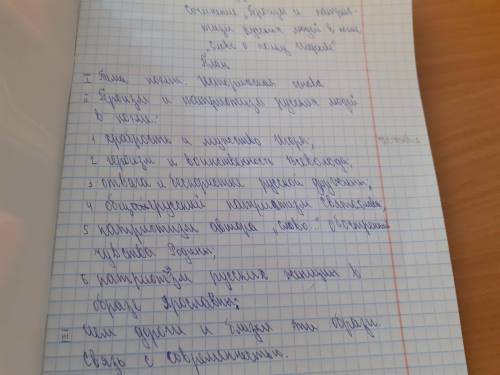 Сочинение "Героизм и патрио-
тизм русских людей в поэме
"Слово о полку Игореве"
План
I Тема поэмы. Историческая основа
II Героизм и патриотизм русских людей
в поэме:
1 храбрость и мужество Игоря;
2 героизм и воинственность Всеволода;
3 отвага и бесстрашие русской дружины;
4 общерусский патриотизм Святослава;
5 патриотизм автора "Слово..." обострение
чувства Родины;
6 патриотизм русских женщин в
образе Ярославны;
III Чем дороги и близки эти образы
связь с современностью.